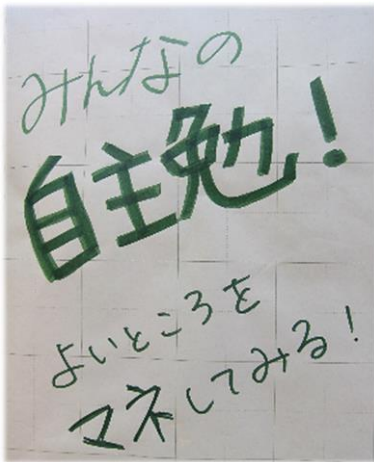 みんなの
自主勉!
よいところを
マネしてみる!